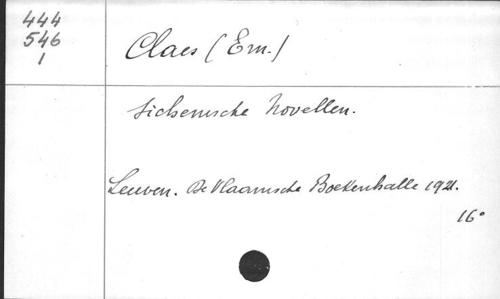 444
546
1
Claes (Ern.)
Sichemsche Novellen.
Leuven. De Vlaamsche Boekenhalle 1921.
16°